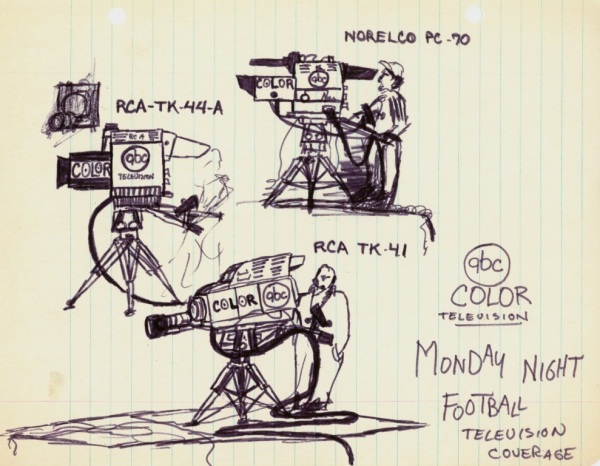 NORELCO PC-70
COLOR
abc
RCA-TK-44-A
RCA
COLOR
abc
TELEVISION
RCA TK-41
COLOR
abc
abc
COLOR
TELEVISION
MONDAY NIGHT
FOOTBALL
TELEVISION
COVERAGE